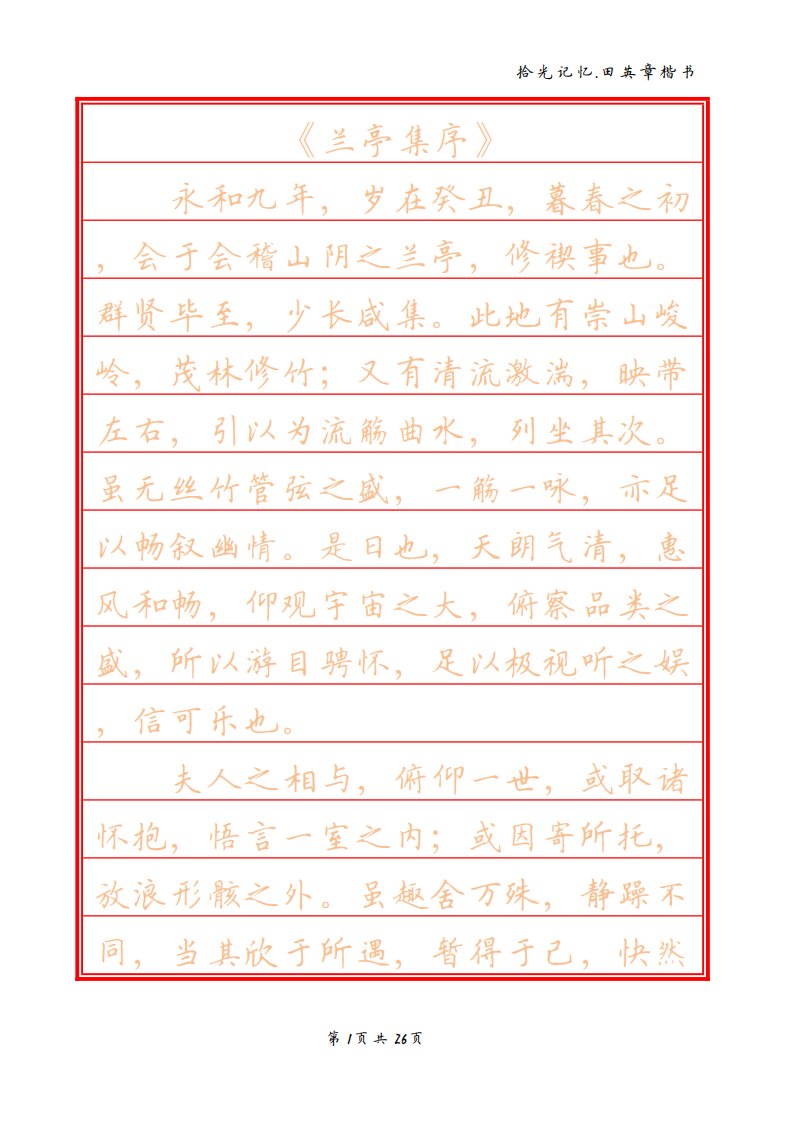 拾光记忆.田英章楷书
《兰亭集序》
永和九年，岁在癸丑，暮春之初
，会于会稽山阴之兰亭，修禊事也。
群贤毕至，少长咸集。此地有崇山峻
岭，茂林修竹；又有清流激湍，映带
左右，引以为流觞曲水，列坐其次。
虽无丝竹管弦之盛，一觞一咏，亦足
以畅叙幽情。是日也，天朗气清，惠
风和畅，仰观宇宙之大，俯察品类之
盛，所以游目骋怀，足以极视听之娱
，信可乐也。
夫人之相与，俯仰一世，或取诸
怀抱，悟言一室之内；或因寄所托，
放浪形骸之外。虽趣舍万殊，静躁不
同，当其欣于所遇，暂得于己，快然
第 1页 共 26页